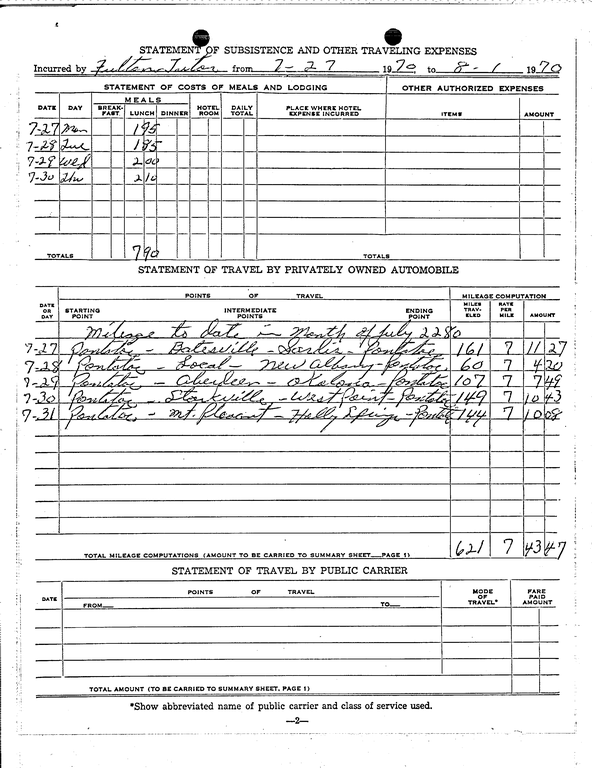 STATEMENT OF SUBSISTENCE AND OTHER TRAVELING EXPENSES
Incurred by Fulton Tutor from 7-27 1970, to 8-1 1970
STATEMENT OF COSTS OF MEALS AND LODGING OTHER AUTHORIZED EXPENSES
DATE DAY MEALS BREAK-FAST LUNCH DINNER HOTEL ROOM DAILY TOTAL PLACE WHERE HOTEL EXPENSE INCURRED ITEMS AMOUNT
7-27 Mon 1 95
7-28 Tue 1 85
7-29 Wed 2 00
7-30 Thu 2 10
TOTALS 7 90 TOTALS
STATEMENT OF TRAVEL BY PRIVATELY OWNED AUTOMOBILE
DATE OR DAY POINTS OF TRAVEL MILEAGE COMPUTATION
STARTING POINT INTERMEDIATE POINTS ENDING POINT MILES TRAV-ELED RATE PER MILE AMOUNT
Mileage to date in Month of July 2280
7-27 Pontotoc - Batesville - Sardis - Pontotoc 161 7 11 27
7-28 Pontotoc - Local - New Albany - Pontotoc 60 7 4 20
7-29 Pontotoc - Aberdeen - Okolona - Pontotoc 107 7 7 49
7-30 Pontotoc - Starkville - West Point - Pontotoc 149 7 10 43
7-31 Pontotoc - Mt. Pleasant - Holly Springs - Pontotoc 144 7 10 08
TOTAL MILEAGE COMPUTATIONS (AMOUNT TO BE CARRIED TO SUMMARY SHEET—PAGE 1) 621 7 43 47
STATEMENT OF TRAVEL BY PUBLIC CARRIER
DATE POINTS OF TRAVEL MODE OF TRAVEL* FARE PAID AMOUNT
FROM— TO—
TOTAL AMOUNT (TO BE CARRIED TO SUMMARY SHEET, PAGE 1)
*Show abbreviated name of public carrier and class of service used.
—2—